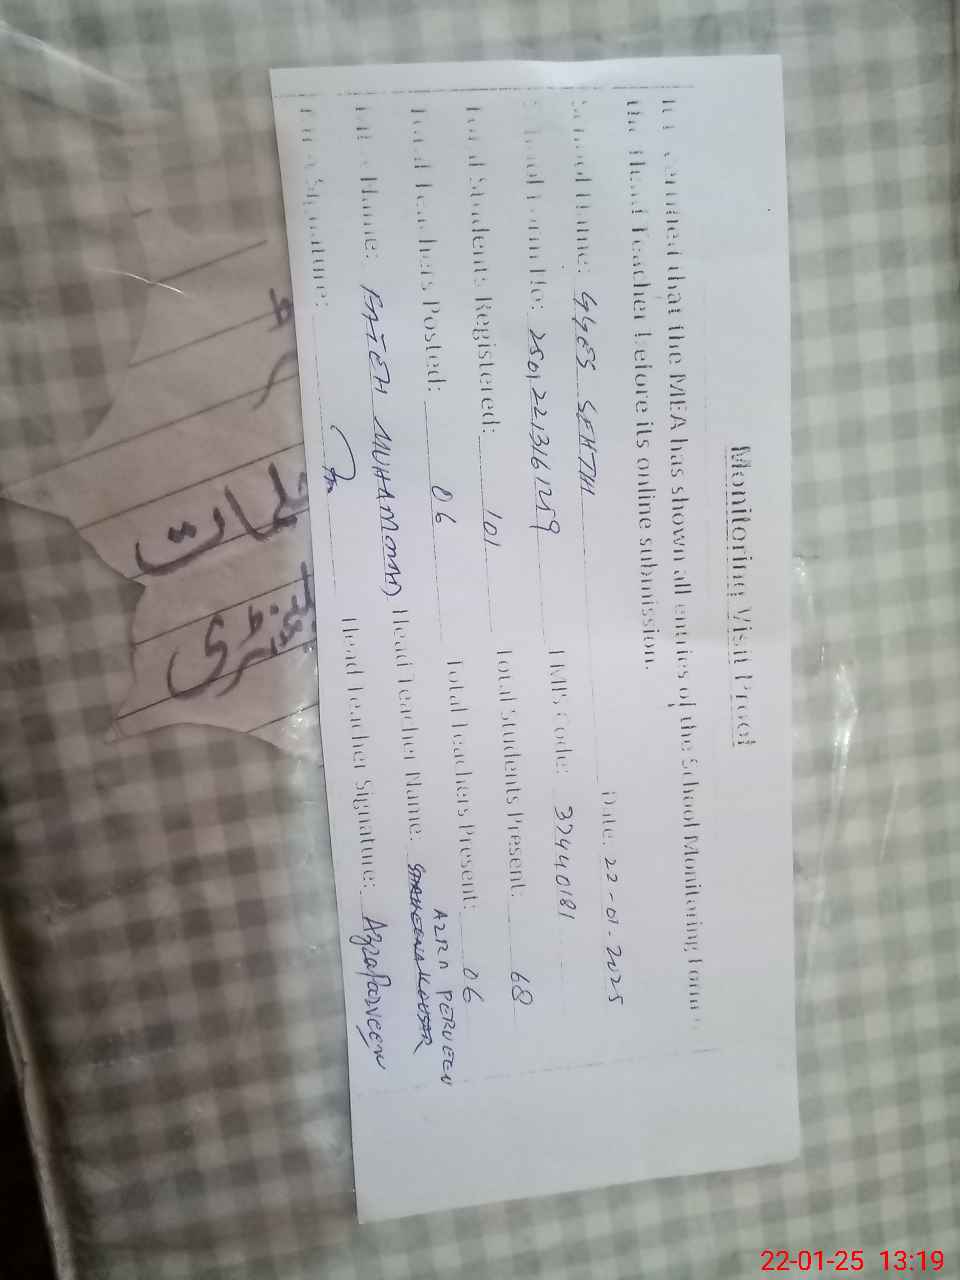 Monitoring Visit Proof
It is certified that the MEA has shown all entries of the School Monitoring Form to
the Head Teacher before its online submission.
Date: 22-01-2025
School Name: GGES SEHTHI
School Form No: 250122131612 EMIS Code: 37440181
Total Students Registered: 101 Total Students Present: 68
Total Teachers Posted: 06 Total Teachers Present: 06
AZRA PERVEEN
MEA Name: FATEH MUHAMMAD Head Teacher Name: SHAHEENA KOUSAR
MEA Signature: Head Teacher Signature: AzraParveen
22-01-25 13:19